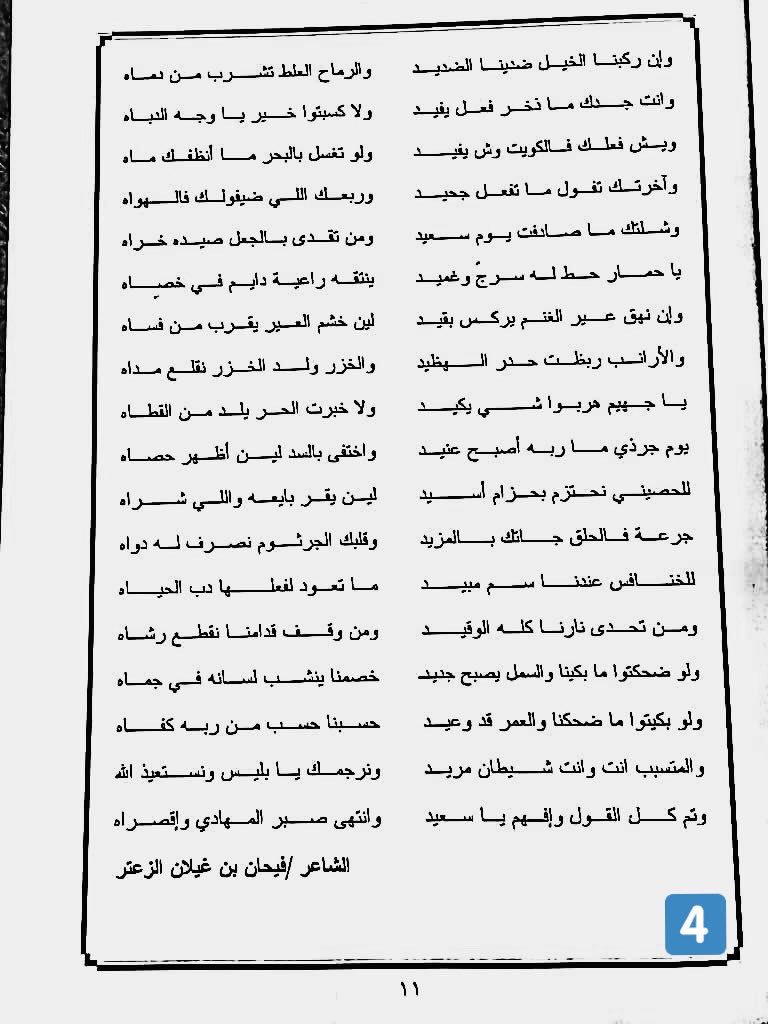 وإن ركبنا الخيل ضدينا الضديد والرماح الغلط تشرب من دماه
وانت جدك ما نخر فعل يفيد ولا كسبتوا خير يا وجه الدباه
ويش فعلك فالكويت وش يفيد ولو تغسل بالبحر ما أنظفك ماه
وآخرتك تقول ما تفعل جحيد وربعك اللي ضيفولك فالهواه
وشلتك ما صادفت يوم سعيد ومن تقدى بالجعل صيده خراه
يا حمار حط له سرجٍ وغميد ينتقه راعية دايم في خصِياه
وإن نهق عير الغنم يركس بقيد لين خشم العير يقرب من فساه
والأرانب ربظت حدر الهظيد والخزر ولد الخزر نقلع مداه
يا جهيم هربوا شي يكيد ولا خبرت الحر يلد من القطاه
يوم جرذي ما ربه أصبح عنيد واختفى بالسد لين أظهر حصاه
للحصيني نحتزم بحزام أسيد لين يقر بايعه واللي شراه
جرعة فالحلق جاتك بالمزيد وقلبك الجرثوم نصرف له دواه
للخنافس عندنا سم مبيد ما تعود لفعلها دب الحياه
ومن تحدى نارنا كله الوقيد ومن وقف قدامنا نقطع رشاه
ولو ضحكتوا ما بكينا والسمل يصبح جديد خصمنا ينشب لسانه في جماه
ولو بكيتوا ما ضحكنا والعمر قد وعيد حسبنا حسب من ربه كفاه
والمتسبب انت وانت شيطان مريد ونرجمك يا بليس ونستعيذ الله
وتم كل القول وإفهم يا سعيد وانتهى صبر المهادي وإقصراه
الشاعر /فيحان بن غيلان الزعتر
4
١١